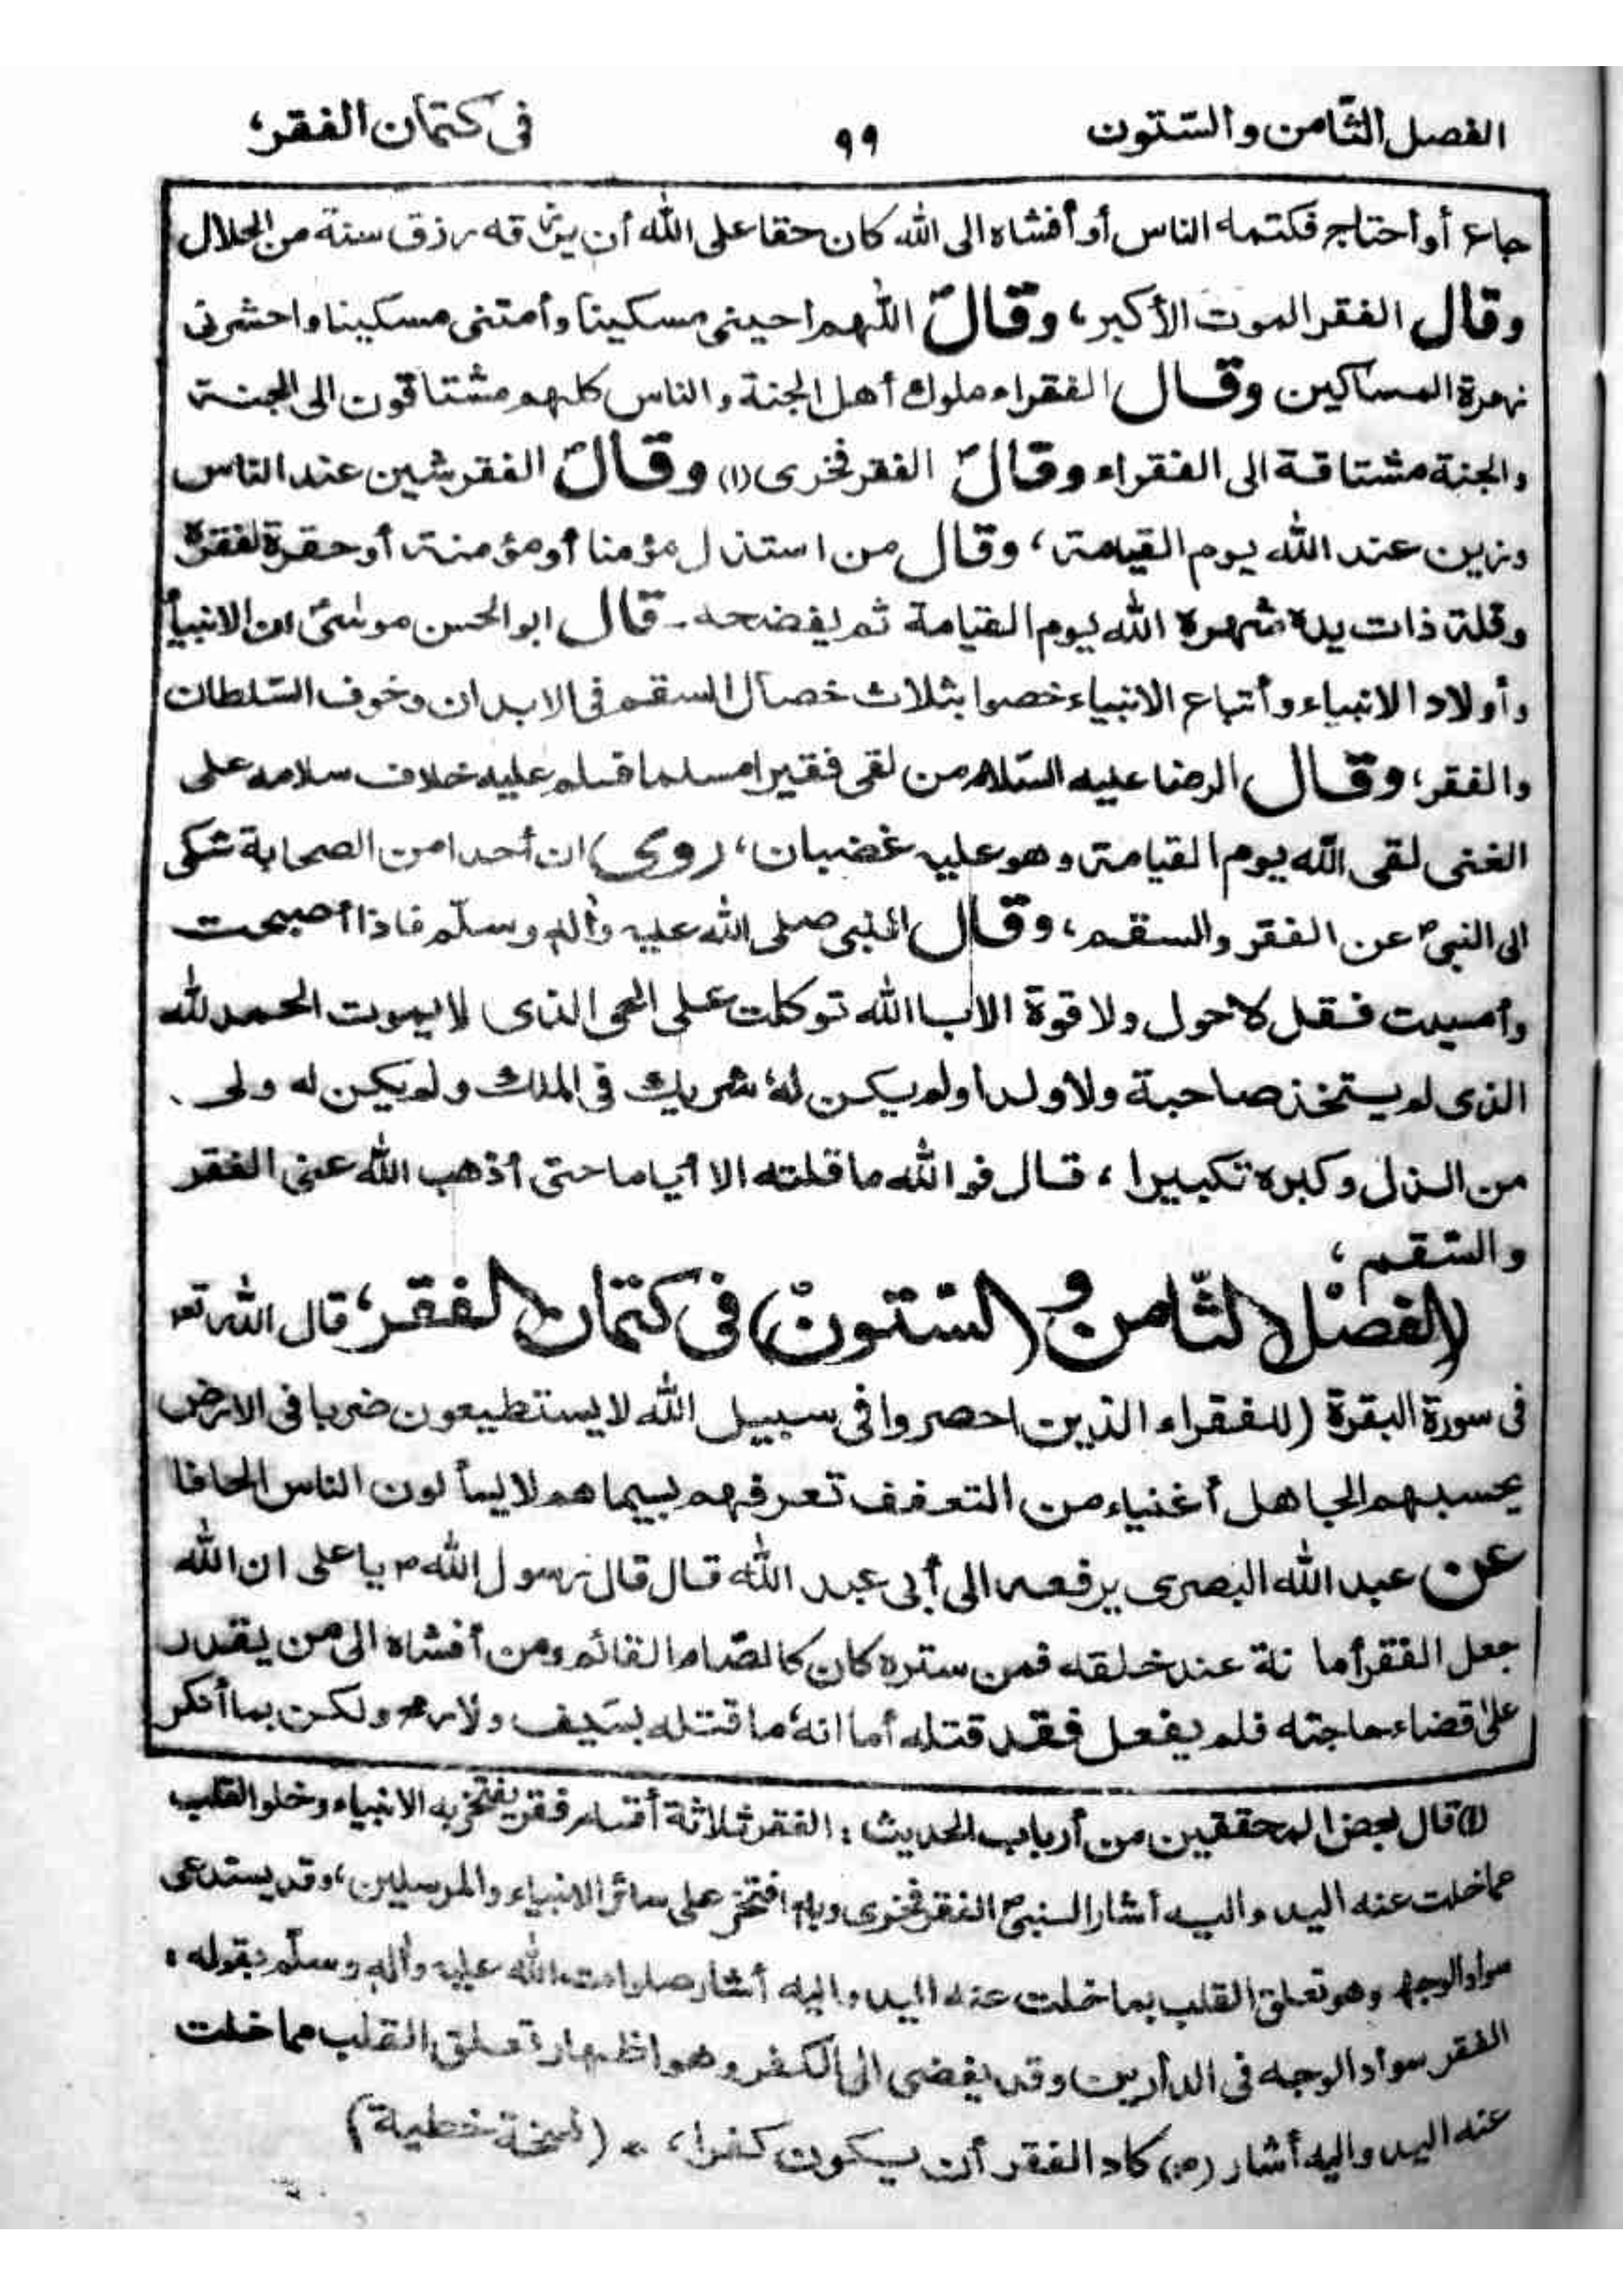 الفصل الثّامن والسّتون ٩٩ فى كتمان الفقر،
جاع أو أحتاج فكتمه الناس أو أفشاه الى الله كان حقا على الله أن يرزقه رزق سنة من الحلال
وقال الفقر الموت الأكبر، وقالؐ اللّٰهم احينى مسكينا وأمتنى مسكينا واحشرنى
زمرة المساكين وقال الفقراء ملوك أهل الجنة والناس كلهم مشتاقون الى الجنة
والجنة مشتاقة الى الفقراء وقالؐ الفقر فخرى (١) وقالؐ الفقر شين عند الناس
وزين عند الله يوم القيامة، وقال من استذل مؤمنا أو مؤمنة أو حقره لفقره
وقلة ذات يده شهره الله يوم القيامة ثم يفضحه ـ قال ابو الحسن موسىؑ ان الانبيأ
وأولاد الانبياء وأتباع الانبياء خصوا بثلاث خصال السقم فى الابدان وخوف السّلطان
والفقر، وقال الرضا عليه السّلام من لقى فقيرا مسلما فسلم عليه خلاف سلامه على
الغنى لقى الله يوم القيامة وهو عليه غضبان، روى) ان أحدا من الصحابة شكى
الى النبىؐ عن الفقر والسقم، وقال النبى صلى الله عليه وأله وسلّم فاذا أصبحت
وأمسيت فقل لاحول ولا قوة الاباالله توكلت على الحى الذى لا يموت الحمد لله
الذى لم يستخذ صاحبة ولا ولدا ولم يكن له شريك فى الملك ولم يكن له ولى
من الذل وكبره تكبيرا، قال فو الله ما قلته الا أياما حتى أذهب الله عنى الفقر
والسّقم،
(الفصل الثّامن و السّتون) فى كتمان الفقر، قال الله تعـ
فى سورة البقرة (للفقراء الذين احصروا فى سبيل الله لا يستطيعون ضربا فى الارض
يحسبهم الجاهل أغنياء من التعفف تعرفهم بسيماهم لا يسألون الناس الحافا
عن عبد الله البصرى يرفعه الى أبى عبد الله قال قال رسول اللهؐ يا على ان الله
جعل الفقر أما نة عند خلقه فمن ستره كان كالصّام القائم ومن أفشاه الى من يقدر
على قضاء حاجته فلم يفعل فقد قتله أما انه ما قتله بسَيف ولا رمح ولكن بما أنكر
(١) قال بعض المحققين من أرباب الحديث: الفقر ثلاثة أقسام فقر يفتخر به الانبياء وخلو القلب
مما خلت عنه اليد واليه أشار النبىؐ الفقر فخرى وبه افتخر على سائر الانبياء والمرسلين، وقد يستدعى
سواد الوجه وهو تعلق القلب بما خلت عنه اليد واليه أشار صلوات الله عليه وأله وسلّم بقوله:
الفقر سواد الوجه فى الدارين وقد يفضى الى الكفر وهو اظهار تعلق القلب مما خلت
عنه اليد واليه أشار (ص) كاد الفقر أن يكون كفرا، (نسخة خطية)